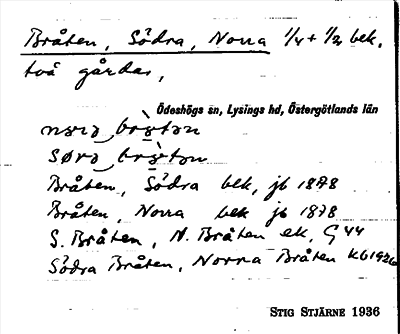 Bråten, Södra, Norra 1/4 + 1/2 bek.
två gårdar,
Ödeshögs sn, Lysings hd, Östergötlands län
Bråten, Södra bek, jb 1878
Bråten, Norra bek jb 1878
S. Bråten, N. Bråten ek, G 44
Södra Bråten, Norra Bråten Kb 1926
STIG STJÄRNE 1936